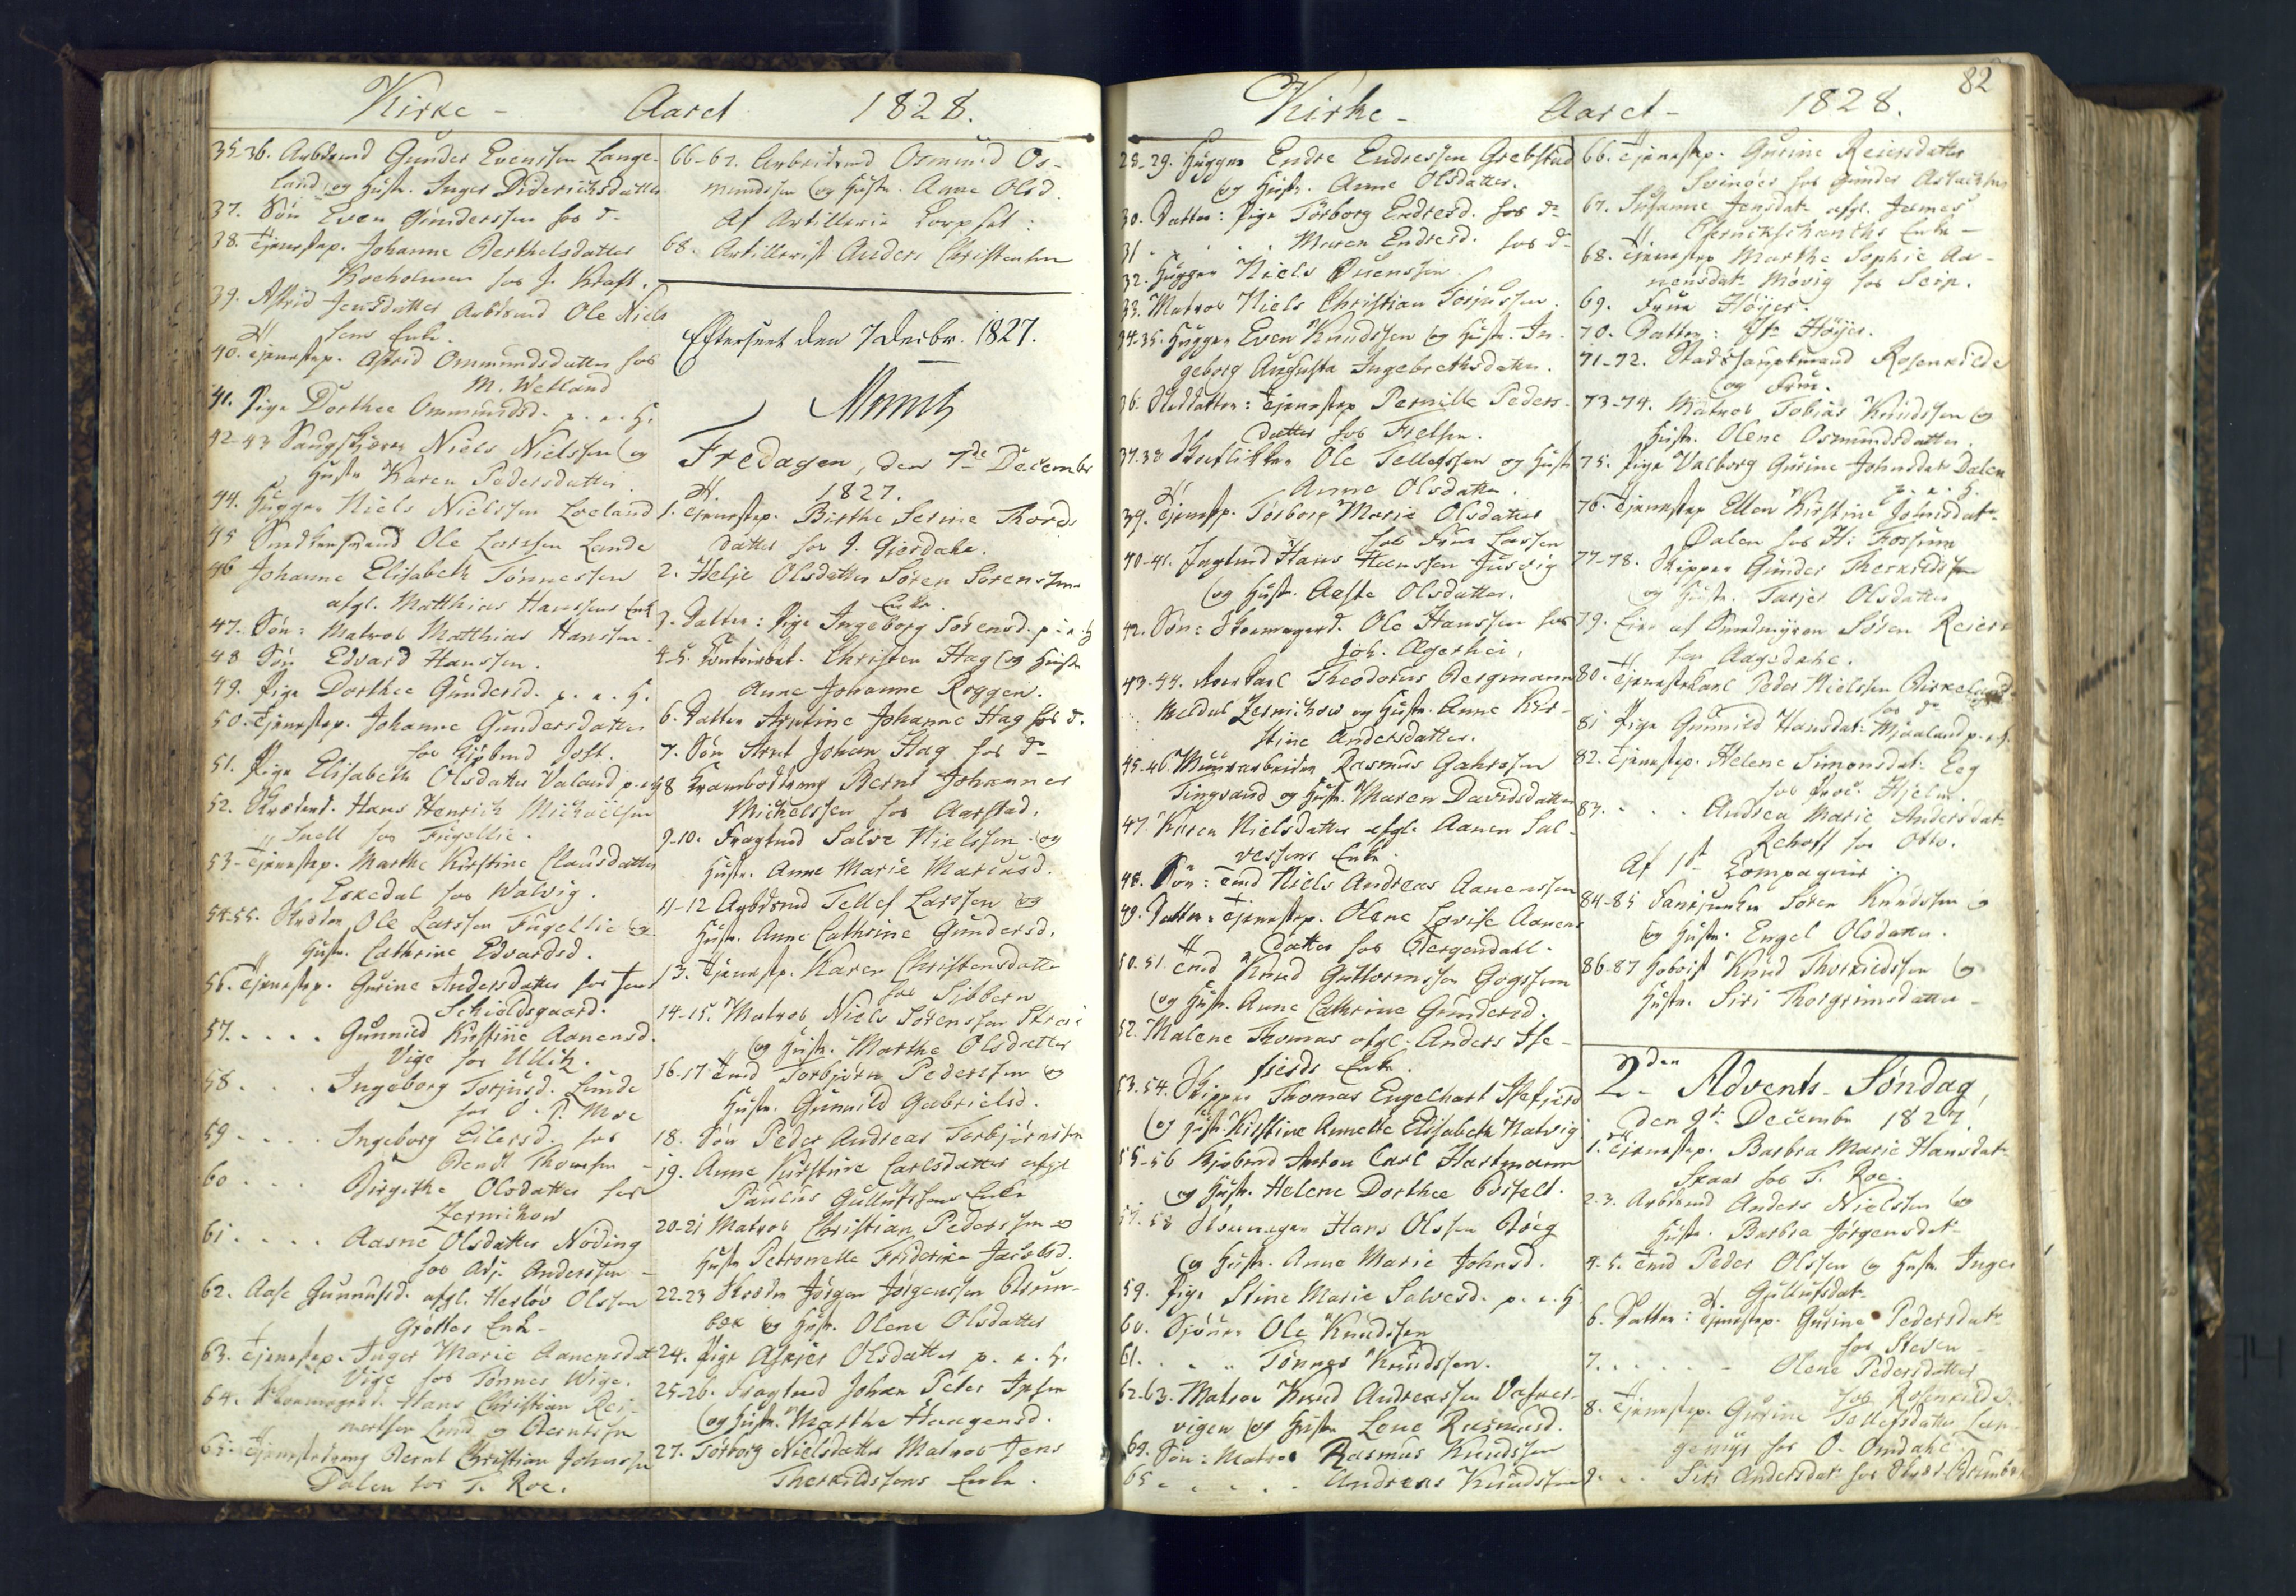 Kirke - Aaret 1828.
35-36. Arbdsmd Gunder Evenssen Lange-
land og Hustr. Inger Didericksdatter
37. Søn Even Gunderssen hos do
38. Tjenestep. Johanne Berthelsdatter
Roeholmen hos J. Kraft.
39. Astrid Jensdatter Arbdsmd Ole Niels
sens Enke.
40. Tjenestep. Astrid Ommundsdatter hos
M. Wetland
41. Pige Dorthee Ommundsd. p. e. H.
42-43 Saugskjærer Niels Nielssen og
Hustr Karen Pedersdatter.
44. Hugger Niels Nielssen Loeland
45 Ole Larssen Lande
46 Johanne Elisabeth Tønnessen
afgl. Matthias Hanssens Enke
47. Søn: Matros Matthias Hanssen.
48 Søn Edvard Hanssen.
49. Pige Dorthee Gundersd. p. e. H.
50. Tjenestep. Johanne Gundersdatter
hos Kjøbmd Jost.
51. Pige Elisabeth Olsdatter Valand p. e. H
52. Hans Henrich Michaelsen
Snell hos Fugellie.
53- Tjenestep. Marthe Kirstine Clausdatter
Eskedal hos Walvig.
54-55. Ole Larssen Fugellie og
Hustr. Cathrine Edvardsd.
56. Tjenestep. Gurine Andersdatter hos
Schioldsgaard.
57. . . . . Gunnild Kirstine Aanensd.
Vige hos Ullitz.
58 . . . Ingeborg Torjusd. Lunde
hos O. P. Moe
59 . . . . Ingeborg Eilersd. hos
Bendt Thomsen -
60 . . . Birgithe Olsdatter hos
Zernikow
61 . . . . Aasne Olsdatter Nøding
hos Adj. Anderssen -
62. Aase Gunnufsd. afgl. Herløv Olssen
Grøttes Enke -
63. Tjenestep. Inger Marie Aanensdat
Vige hos Tønnes Wige.
64. Hans Christian Rei-
nertsen Lund og Berntsen
65. Tjenestedreng Bernt Christian Johnssen
Dalen hos T. Roe.
66-67. Arbeidsmd Osmund Os-
mundssen og Hustr. Anne Olsd.
Af Artillerie Corpset:
68. Artillerist Anders Christensen
Efterseet den 7 Decbr. 1827.
Munch
Fredagen, den 7de December
1827.
1. Tjenestep. Birthe Serine Thords
datter hos J. Gierdahl.
2. Helje Olsdatter Søren Sørenssens
Enke.
3. Datter: Pige Ingeborg Sørensd. p. e. H
4-5. Christen Hag og Hustr
Anne Johanne Roggen.
6. Datter Arntine Johanne Hag hos d.
7. Søn Arnt Johan Hag hos do
8 Bernt Johannes
Michelssen hos Aarstad.
9-10. Fragtmd Salve Nielssen og
Hustr. Anne Marie Mariusd.
11-12 Arbdsmd Tellef Larssen og
Hustr. Anne Cathrine Gundersd.
13. Tjenestp. Karen Christensdatter
hos Sibbern
14-15. Matros Niels Sørenssen
og Hustr. Marthe Olsdatter
16-17 Tmd Torbjørn Pederssen og
Hustr. Gunnild Gabrielsd.
18. Søn Peder Andreas Torbjørnsen
19. Anne Kirstine Carlsdatter afgl
Paulus Gullufssens Enke
20-21 Matros Christian Pederssen og
Hustr Petronelle Friderica Jacobsd.
22-23 Jørgen Jørgenssen Brun-
bæk og Hustr. Olene Olsdatter
24. Pige Asgjer Olsdatter p. e. H.
25-26. Fragtmd Johan Peter Ipsen
og Hustr. Marthe Haagensd.
27. Torborg Nielsdatter Matros Jens
Therkildssens Enke.
82
Kirke - Aaret - 1828.
28-29. Hugger Endre Endressen Grebstad
og Hustr. Anne Olsdatter.
30. Datter: Pige Torborg Endresd. hos do
31 . . . . Maren Endresd. hos d-
32. Hugger Niels Evenssen
33. Matros Niels Christian Torjussen.
34-35. Hugger Even Knudssen og Hustr. In-
geborg Augusta Ingebrethsdatter.
36. Tjenestep Pernille Peders-
datter hos Frelsen.
37-38 Ole Tellefssen og Hustr
Anne Olsdatter.
39. Tjenestp. Torborg Marie Olsdatter
hos Frue Larsen
40-41. Hans Hanssen Jusvig
og Hustr. Aaste Olsdatter.
42. Søn: Skoemagerd. Ole Hanssen hos
Joh. Agerhei.
43-44. Theodorus Bergmann
Zernichow og Hustr. Anne Kir-
stine Andersdatter.
45-46 Muurarbeider Rasmus Gahrssen
Tingvand og Hustr. Maren Davidsdatter
47. Karen Nielsdatter afgl. Aanen Sal-
vessens Enke.
48. Søn: Tmd Niels Andreas Aanenssen
49. Datter: Tjenestep. Olene Lovise Aanens
datter hos Bergendahl.
50.51. Tmd Knud Guttormsen Gogssem
og Hustr. Anne Cathrine Gundersd.
52. Malene Thomas afgl. Anders Isе-
fjerds Enke.
53.54. Skipper Thomas Engelhart Isefjerd
og Hustr. Kirstine Annette Elisabeth Natvig
55-56 Kjøbmd Anton Carl Hartmann
og Hustr. Helene Dorthee Odsfelt.
57.58 Skoemager Hans Olssen Bøeg
og Hustr. Anne Marie Johnsd.
59. Pige Stine Marie Salvesd. p. e. H
60. Sjømr Ole Knudssen
61. . . . . Tønnes Knudssen.
62-63. Matros Knud Andreassen Vasker-
vigen og Hustr Lene Rasmusd.
64. Søn: Matros Rasmus Knudssen
65 . . . . . Andreas Knudssen
66. Tjenestep. Gurine Reiersdatter
Svinøer hos Gunder Aslachsen
67. Susanne Jensdat. afgl. James
Enke -
68. Tjenestep Marthe Sophie Aa-
nensdat. Møvig hos Seip.
69. Frue Høyer.
70. Datter: Høyer.
71-72. Stadshauptmand Rosenkilde
og Frue.
73-74. Matros Tobias Knudssen og
Hustr. Olene Osmundsdatter.
75. Pige Valborg Gurine Johnsdat Dalen
p. e. H.
76. Tjenestep Ellen Kirstine Johnsdat.
Dalen hos H. Fossum
77-78. Skipper Gunder Therkildsen
og Hustr. Tarjer Olsdatter
79. Eier af Søren Reiers
sen Aagedahl.
80. Tjenestekarl Peder Nielssen Birkeland
hos do
81 Pige Gunnild Hansdat. Mjaaland p. e. H.
82. Tjenestep. Helene Simonsdat. Eeg
hos Proc. Hjelm.
83. . . . Andrea Marie Andersdat
Rehoff hos Otto.
Af 1ste Compagnie:
84-85 Fanejunker Søren Knudssen og
og Hustr. Engel Olsdatter.
86-87 Hoboist Knud Thorkildssen og
Hustr. Siri Thorgrimsdatter -
2den Advents-Søndag,
den 9de December 1827.
1. Tjenestep. Barbra Marie Hansdat.
Skaar hos T. Roe.
2-3. Arbdsmd Anders Nielssen og
Hustr. Barbra Jørgensdat.
4-5. Tmd Peder Olssen og Hustr. Inger
Gullufsdat.
6. Datter: Tjenestep. Gurine Pedersdat.
hos Steven -
7. . . . . . Olene Pedersdatter
hos Rosenkilde.
8. Tjenestep. Gurine Tellefsdatter Lan-
genys hos O. Omdahl
9. . . Siri Andersdat. hos Brunbæk